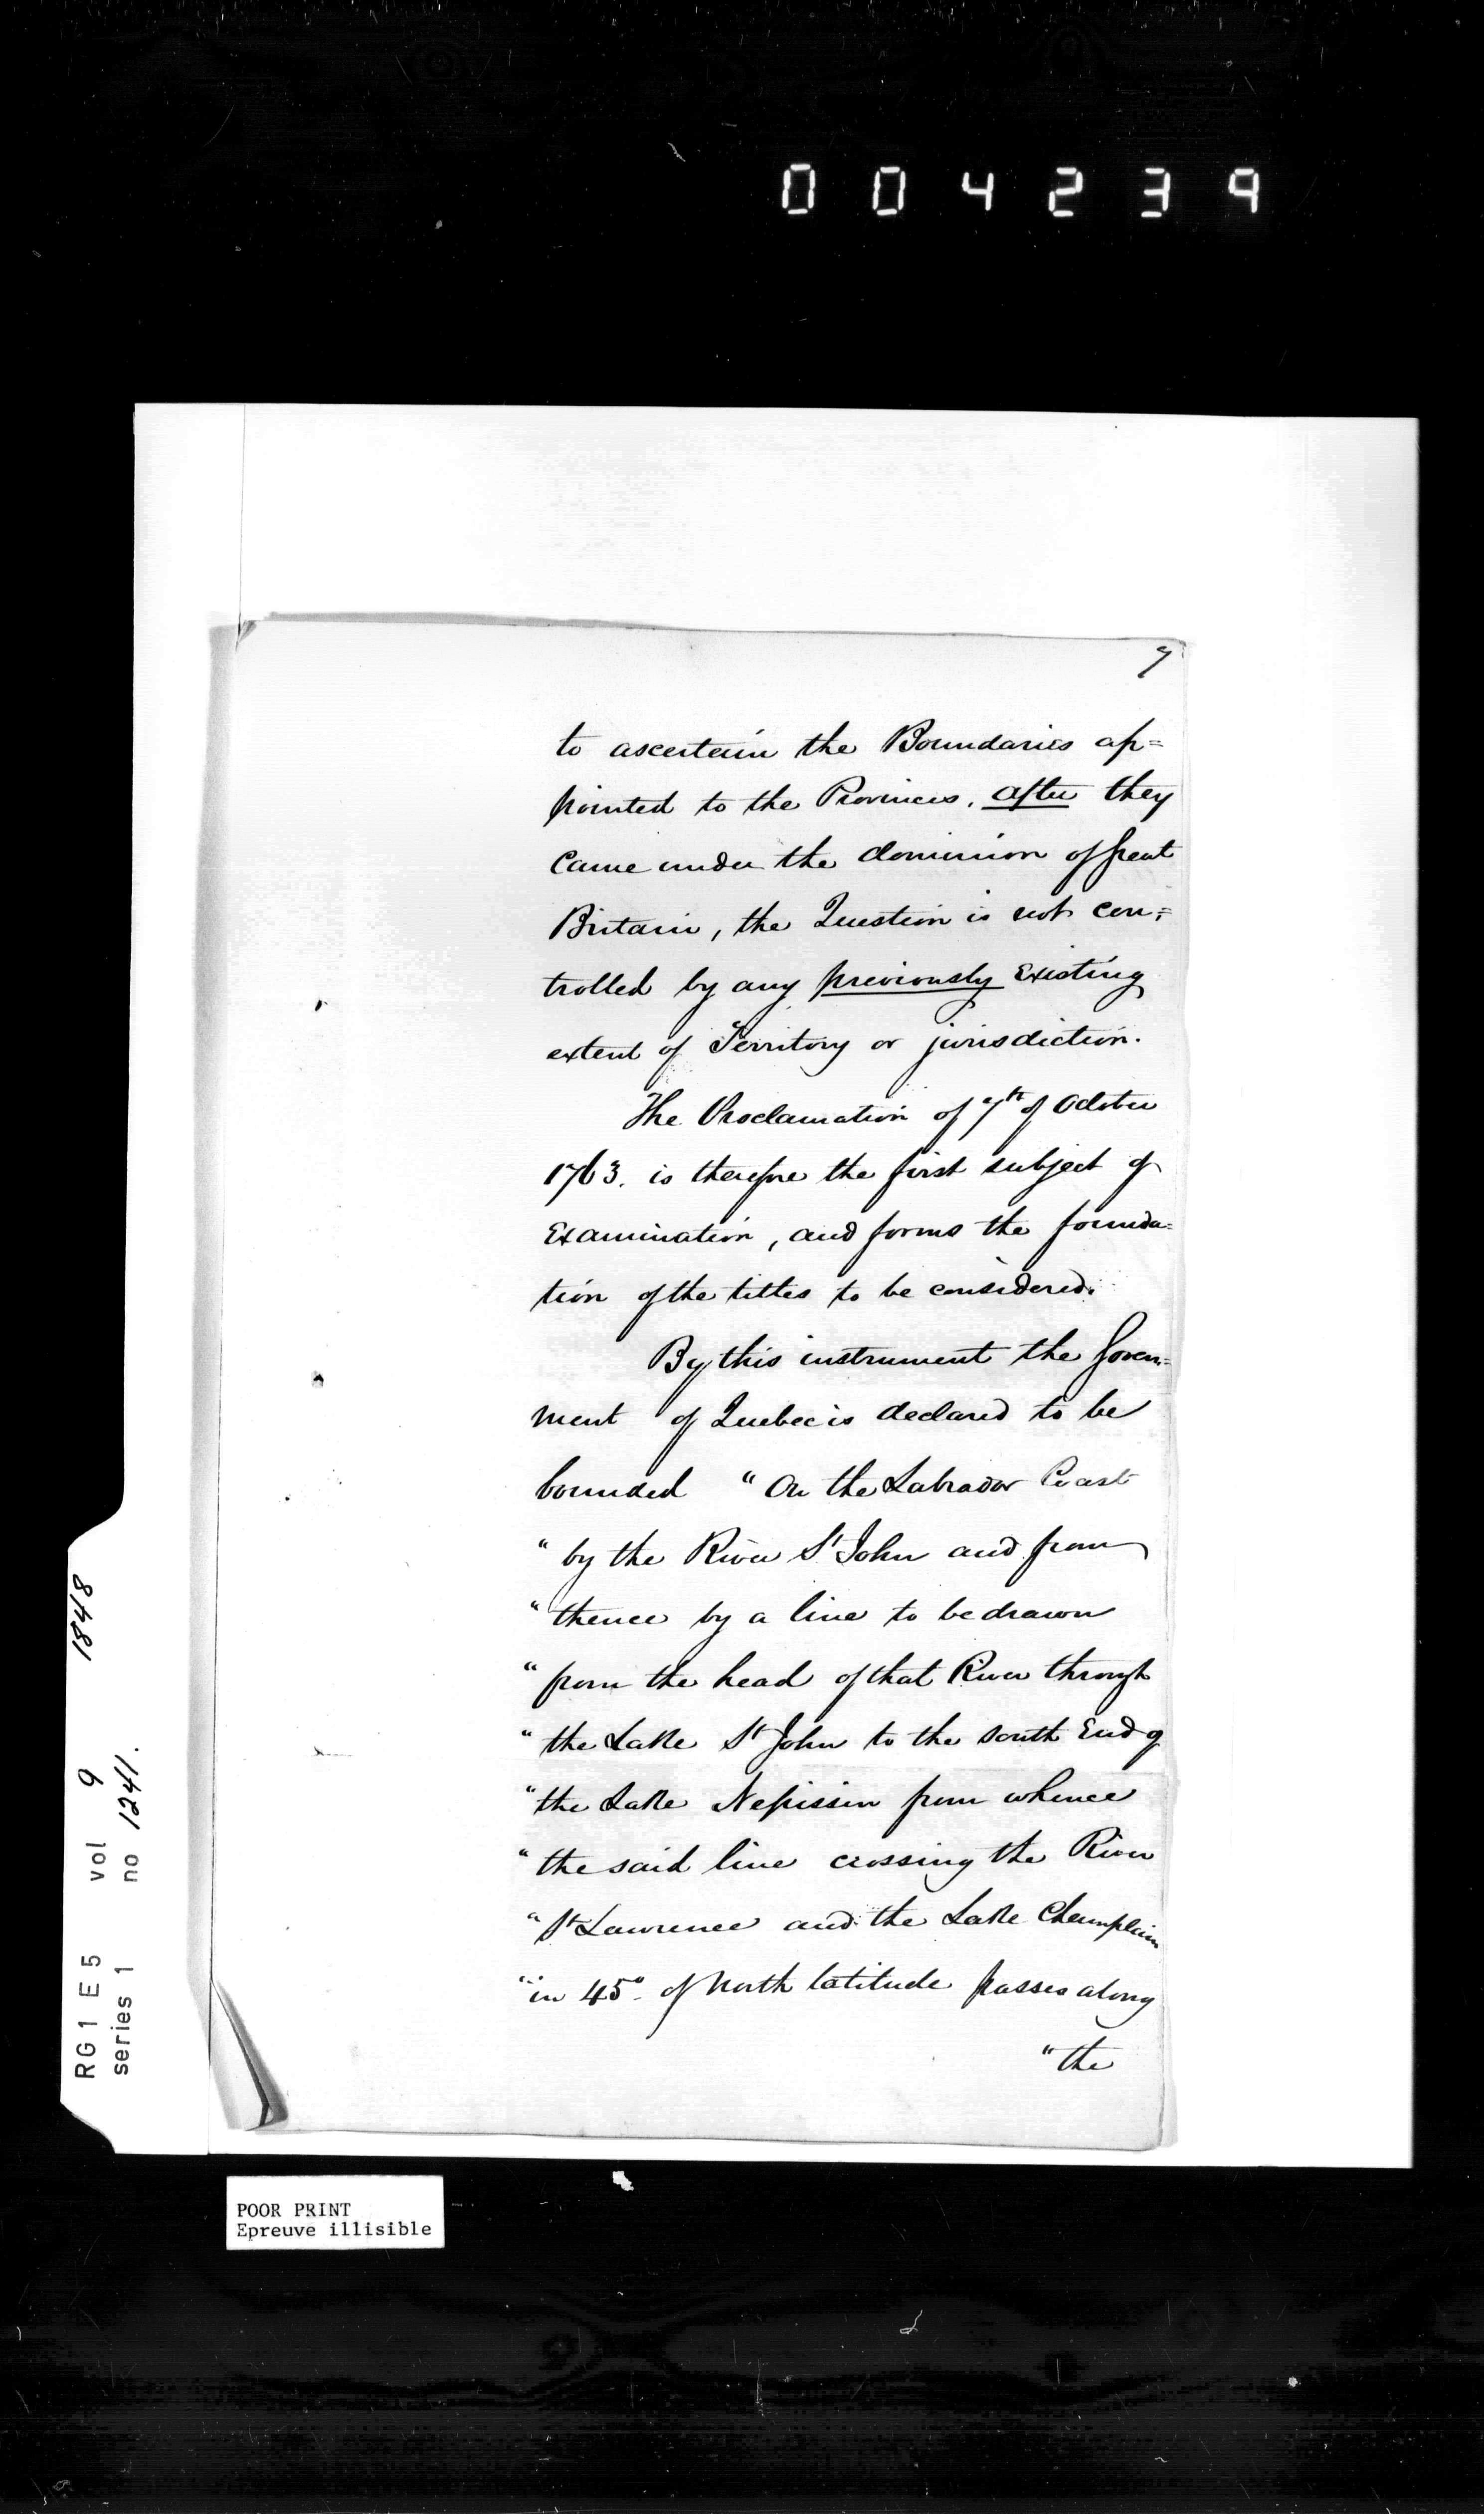 004239
7
to ascertain the Boundaries ap=
pointed to the Provinces, after they
Came under the dominion of Great
Britain, the Question is not con=
trolled by any previously Existing
extent of Territory or jurisdiction.
The Proclamation of 7th of October
1763. is therefore the first subject of
Examination, and forms the founda=
tion of the titles to be considered.
By this instrument the Govern=
ment of Quebec is declared to be
bounded "On the Labrador Coast
"by the River St John and from
"thence by a line to be drawn
"from the head of that River through
"the Lake St John to the south End of
"the Lake Nepissin from whence
"the said line crossing the River
"St Lawrence and the Lake Champlain
"in 45° of North latitude passes along
"the
RG 1 E 5 vol 9 1848
series 1 no 1241.
POOR PRINT
Epreuve illisible